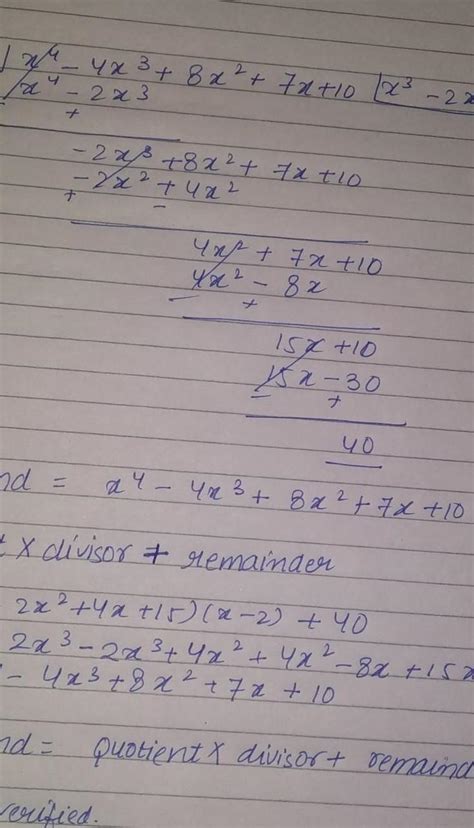 x⁴ - 4x³ + 8x² + 7x + 10 | x³ - 2x
x⁴ - 2x³
- +
-2x³ + 8x² + 7x + 10
-2x² + 4x²
+ -
4x² + 7x + 10
4x² - 8x
- +
15x + 10
15x - 30
- +
40
nd = x⁴ - 4x³ + 8x² + 7x + 10
t × divisor + remainder
2x² + 4x + 15)(x - 2) + 40
2x³ - 2x³ + 4x² + 4x² - 8x + 15x
- 4x³ + 8x² + 7x + 10
nd = quotient × divisor + remaind
verified.